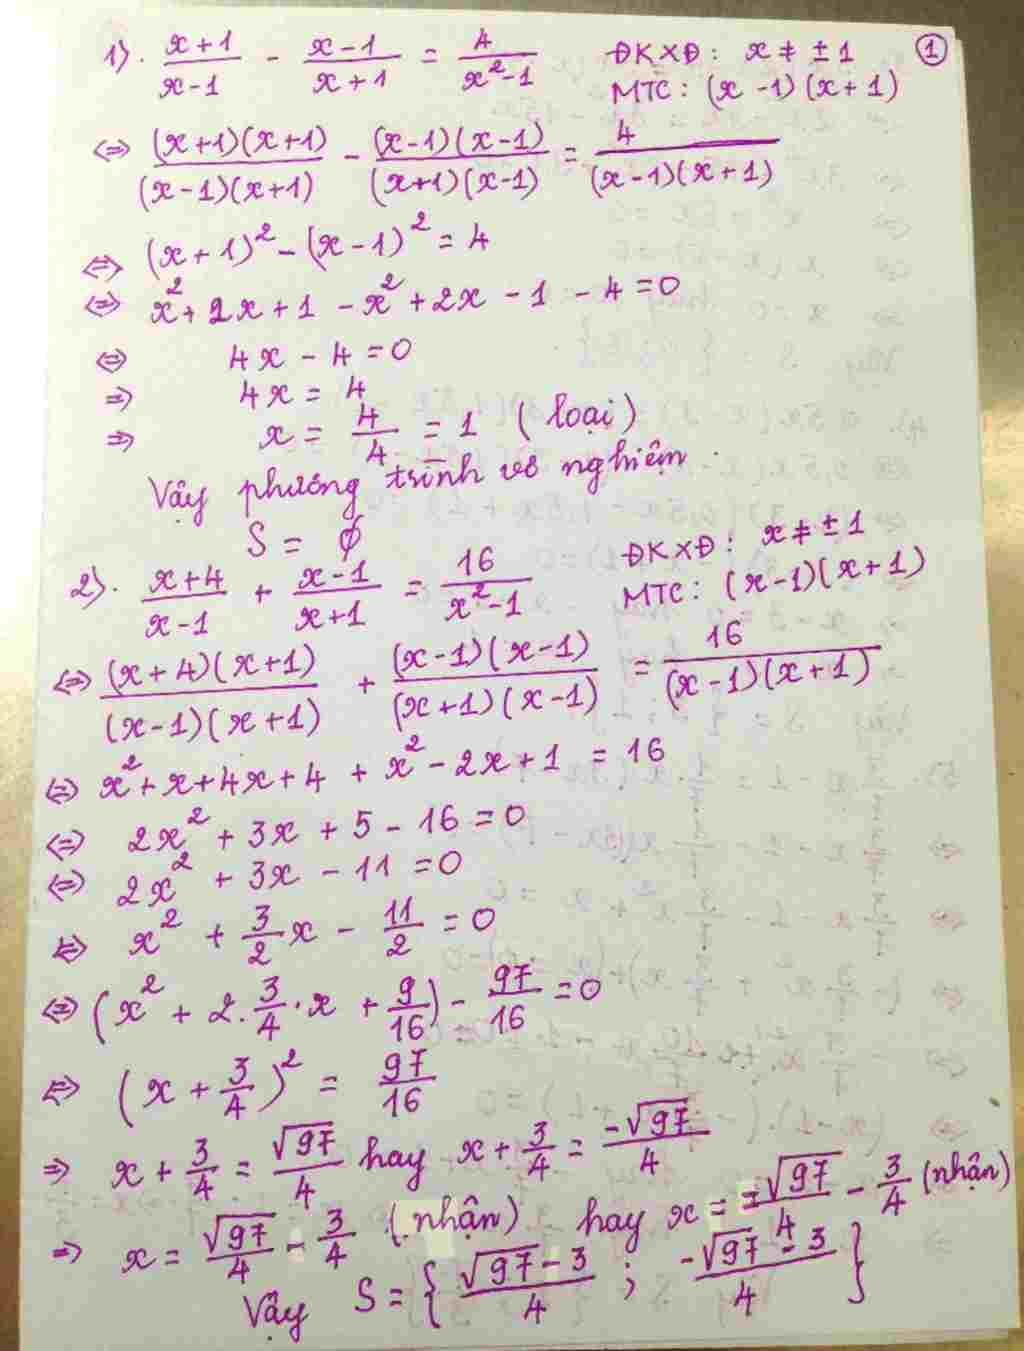 1). \frac{x+1}{x-1} - \frac{x-1}{x+1} = \frac{4}{x^2-1} ĐKXĐ: x ≠ ±1 ①
MTC: (x-1)(x+1)
⇔ \frac{(x+1)(x+1)}{(x-1)(x+1)} - \frac{(x-1)(x-1)}{(x+1)(x-1)} = \frac{4}{(x-1)(x+1)}
⇔ (x+1)^2 - (x-1)^2 = 4
⇔ x^2 + 2x + 1 - x^2 + 2x - 1 - 4 = 0
⇔ 4x - 4 = 0
⇒ 4x = 4
⇒ x = \frac{4}{4} = 1 (loại)
Vậy phương trình vô nghiệm.
S = ∅
2). \frac{x+4}{x-1} + \frac{x-1}{x+1} = \frac{16}{x^2-1} ĐKXĐ: x ≠ ±1
MTC: (x-1)(x+1)
⇔ \frac{(x+4)(x+1)}{(x-1)(x+1)} + \frac{(x-1)(x-1)}{(x+1)(x-1)} = \frac{16}{(x-1)(x+1)}
⇔ x^2 + x + 4x + 4 + x^2 - 2x + 1 = 16
⇔ 2x^2 + 3x + 5 - 16 = 0
⇔ 2x^2 + 3x - 11 = 0
⇔ x^2 + \frac{3}{2}x - \frac{11}{2} = 0
⇔ (x^2 + 2.\frac{3}{4}.x + \frac{9}{16}) - \frac{97}{16} = 0
⇔ (x + \frac{3}{4})^2 = \frac{97}{16}
⇒ x + \frac{3}{4} = \frac{√97}{4} hay x + \frac{3}{4} = \frac{-√97}{4}
⇒ x = \frac{√97}{4} - \frac{3}{4} (nhận) hay x = \frac{-√97}{4} - \frac{3}{4} (nhận)
Vậy S = {\frac{√97-3}{4} ; \frac{-√97-3}{4}}